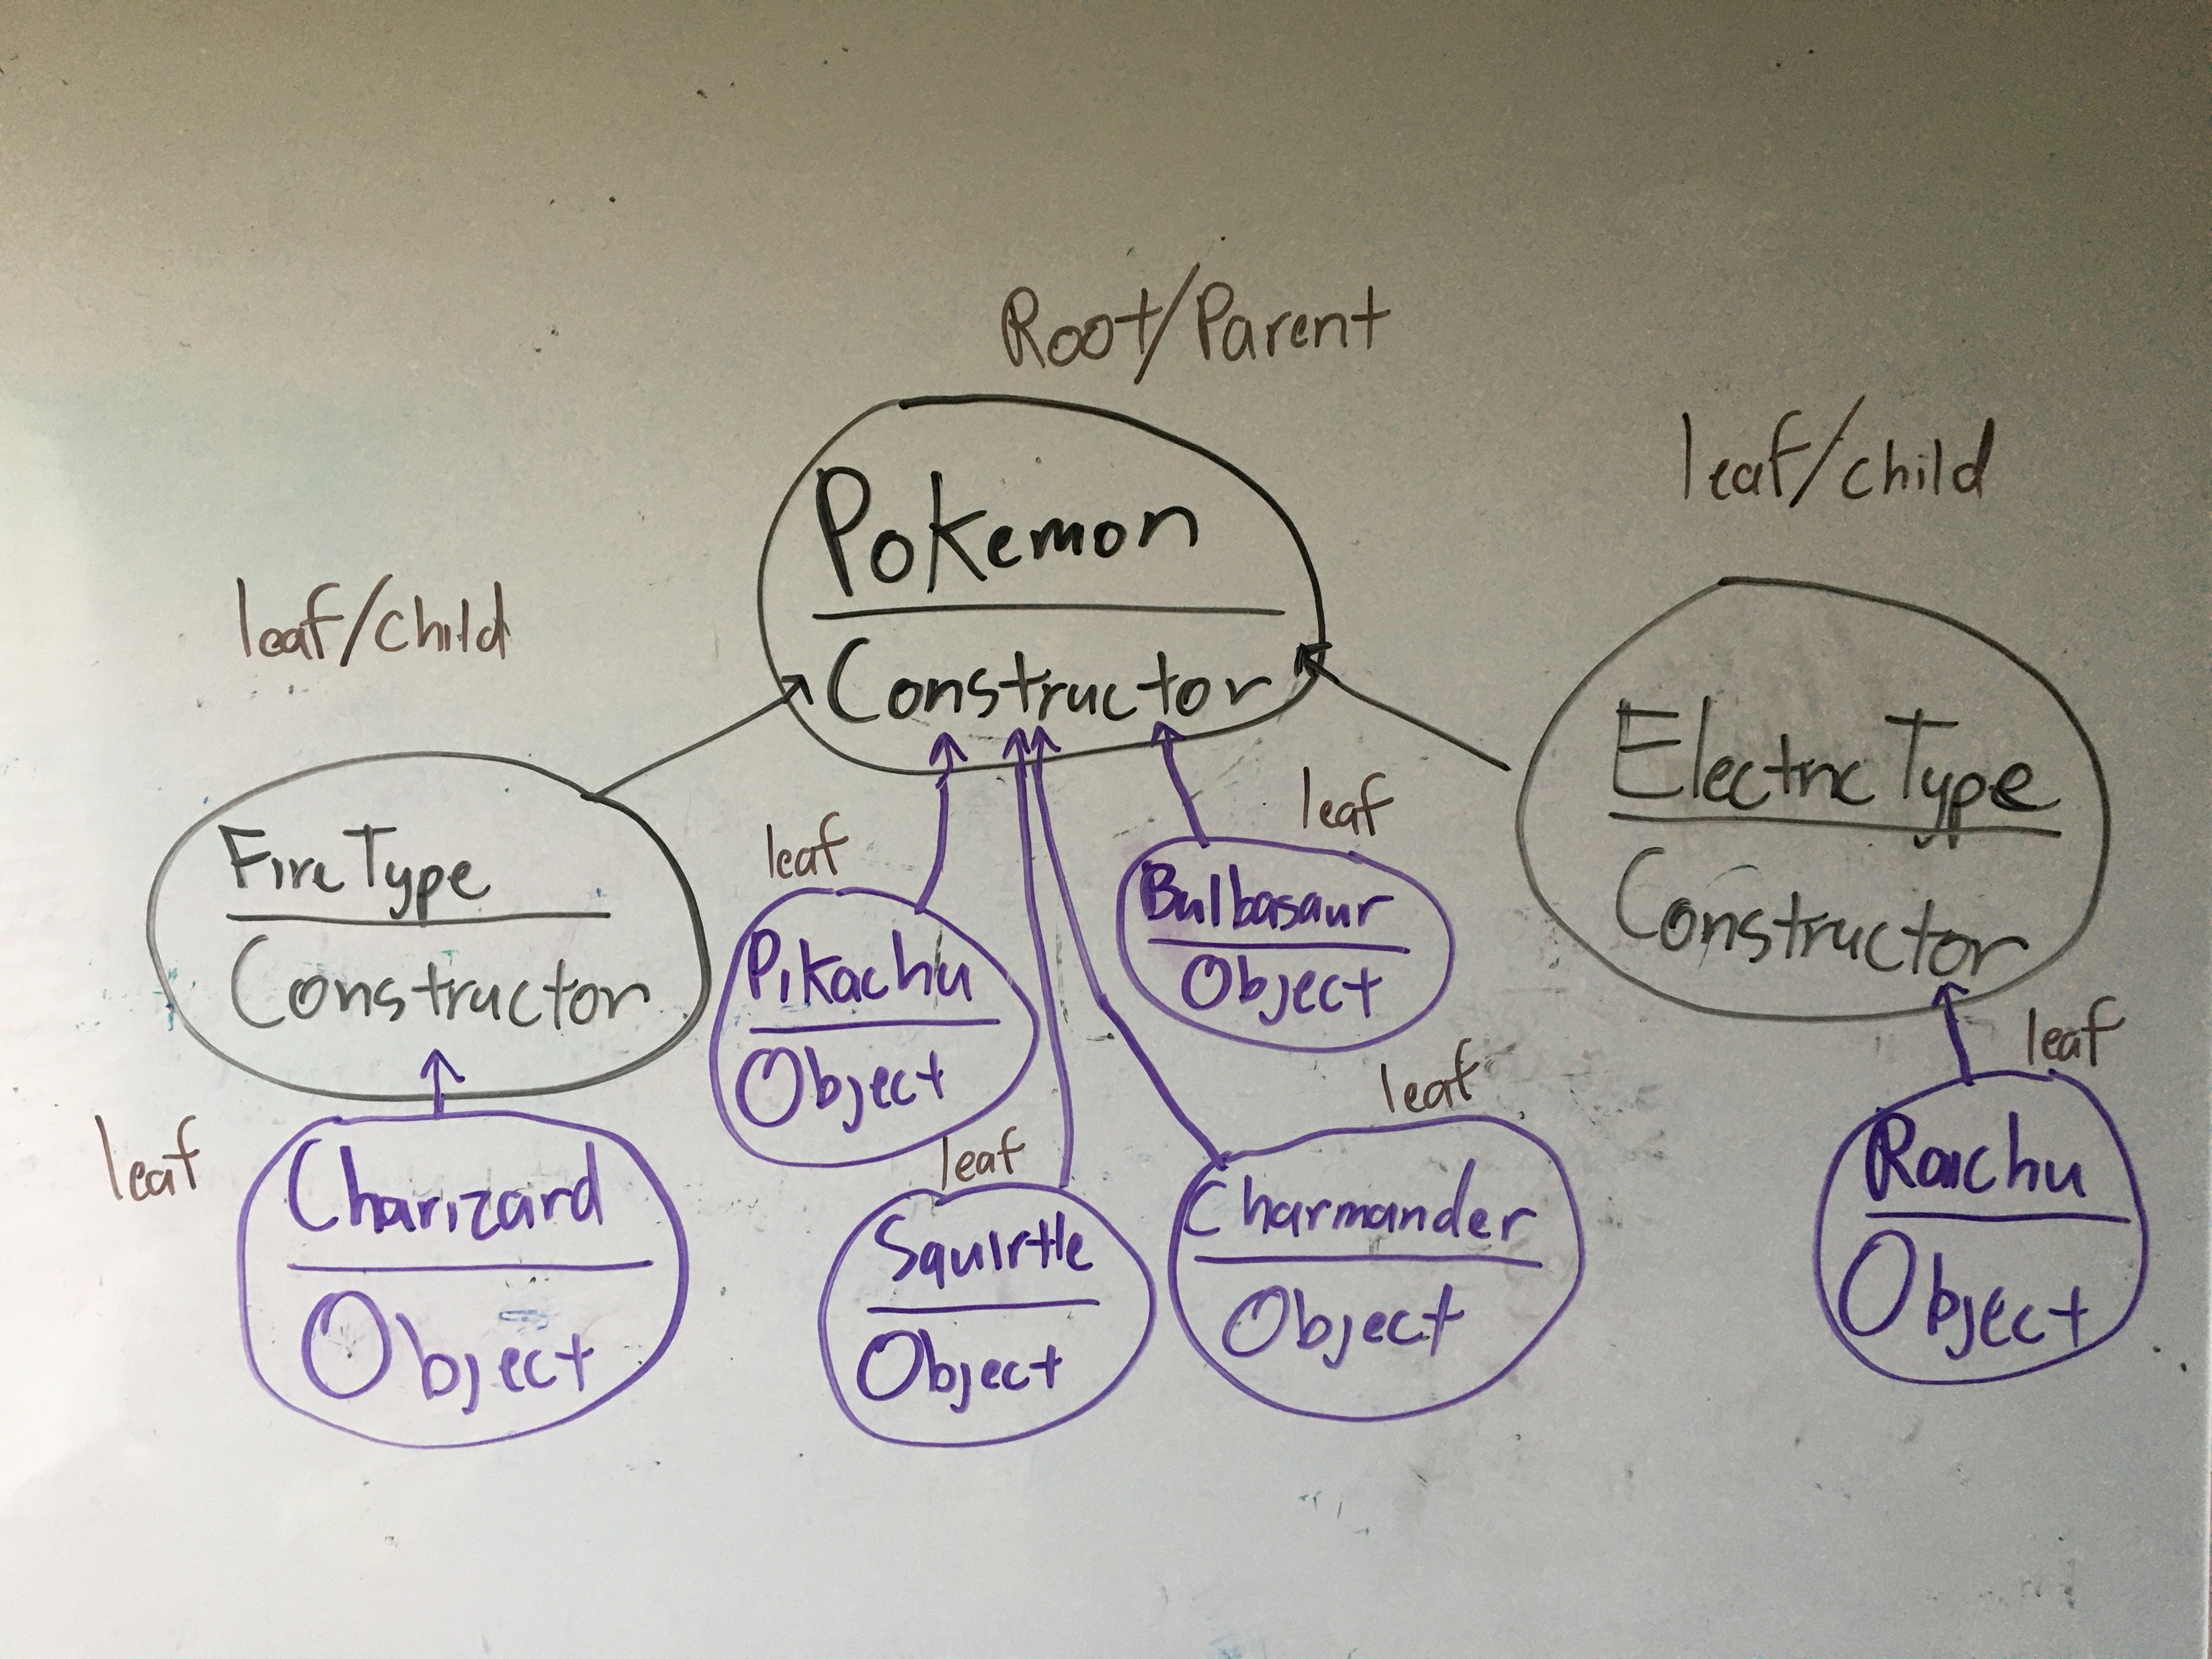 Root/Parent
Pokemon
Constructor
leaf/child
Electric Type
Constructor
leaf/child
Fire Type
Constructor
leaf
Pikachu
Object
leaf
Bulbasaur
Object
leaf
Charizard
Object
leaf
Squirtle
Object
leaf
Charmander
Object
leaf
Raichu
Object